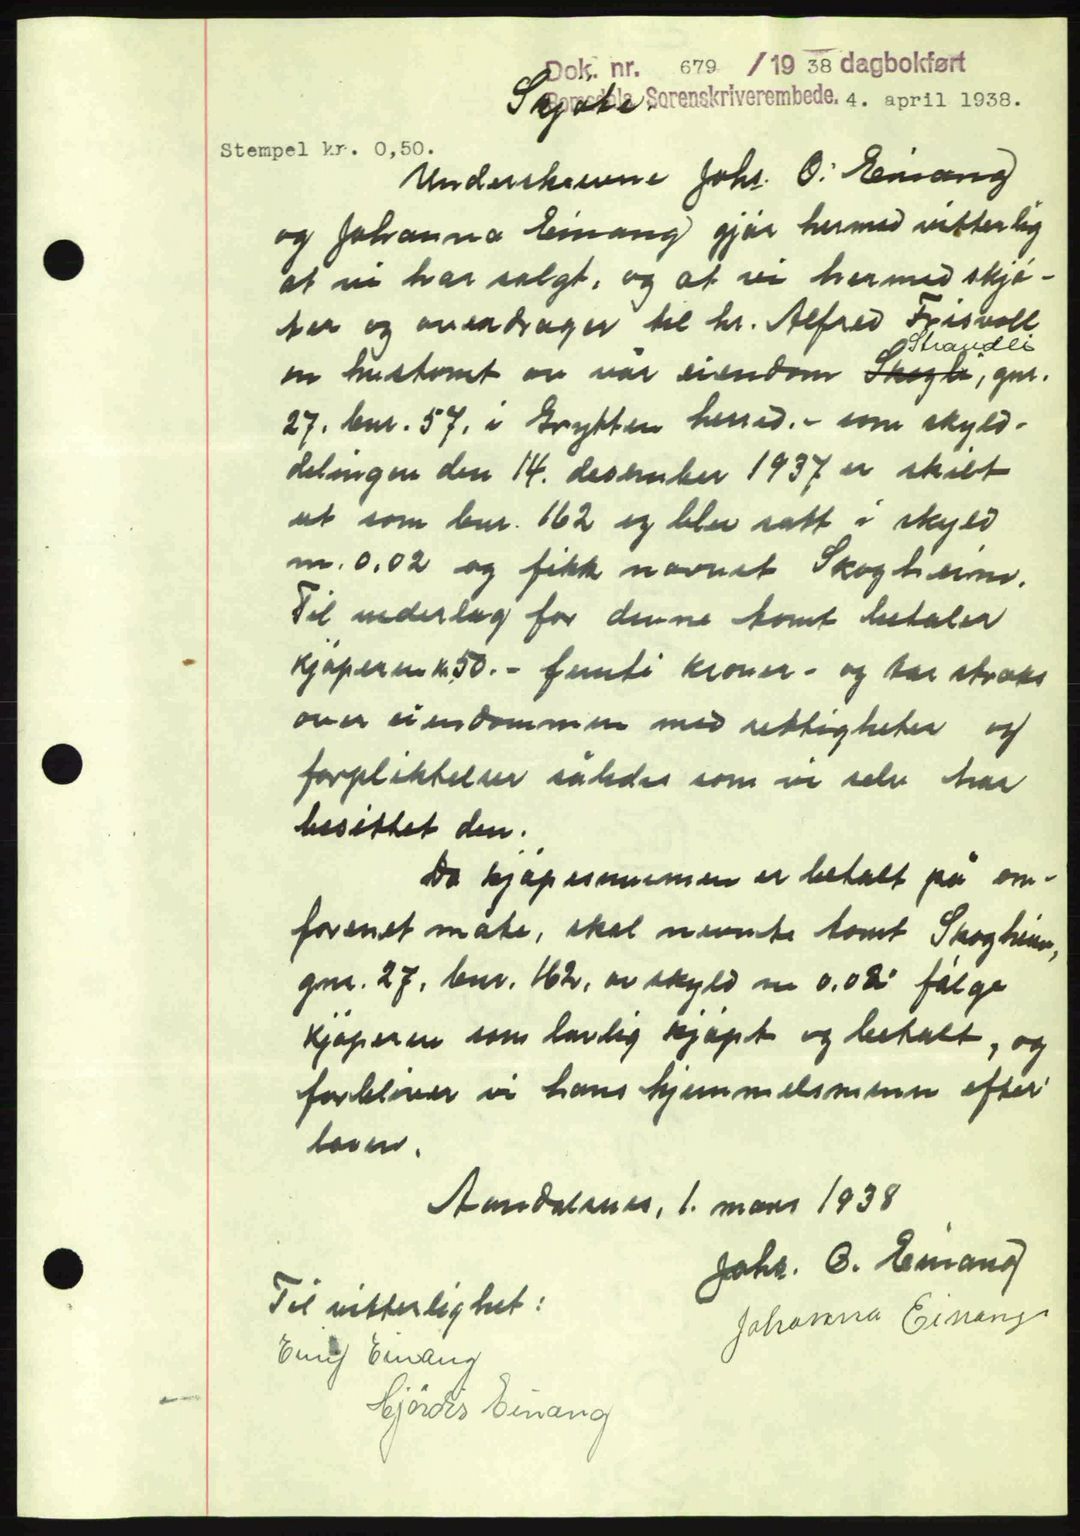 Dok. nr. 679 / 19 38 dagbokført
Romsdals Sorenskriverembede. 4. april 1938.
Skjøte.
Stempel kr. 0,50.
Underskrevne Johs. O. Einang
og Johanna Einang gjör hermed vitterlig
at vi har solgt, og at vi hermed skjö-
ter og overdrager til hr. Alfred Frisvoll
Strandli
en hustomt av vår eiendom Skogli, gnr.
27. bnr. 57. i Grytten herred. - som skyld-
delingen den 14. desember 1937 er skilt
ut som bnr. 162 og blev satt i skyld
m. 0.02 og fikk navnet Skogheim.
Til vederlag for denne tomt betaler
kjöperen kr. 50. - femti kroner - og tar straks
over eiendommen med rettigheter og
forpliktelser således som vi selv har
besittet den.
Da kjöpesummen er betalt på om-
forenet måte, skal nevnte tomt Skogheim,
gnr. 27, bnr. 162, av skyld m 0.02 fölge
kjöperen som lovlig kjöpt og betalt, og
forbliver vi hans hjemmelsmenn efter
loven.
Aandalsnes, 1. mars 1938
Johs. O. Einang
Johanna Einang
Til vitterlighet:
Einang
Hjördis Einang